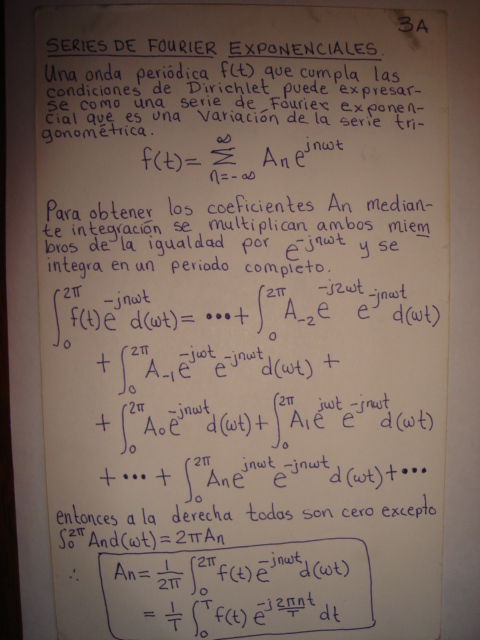 3A
SERIES DE FOURIER EXPONENCIALES.
Una onda periódica f(t) que cumpla las
condiciones de Dirichlet puede expresar-
se como una serie de Fourier exponen-
cial que es una Variación de la serie tri-
gonométrica.
f(t) = ∑_{n=-∞}^{∞} An e^{jnωt}
Para obtener los coeficientes An median-
te integración se multiplican ambos miem
bros de la igualdad por e^{-jnωt} y se
integra en un periodo completo.
∫_0^{2π} f(t) e^{-jnωt} d(ωt) = ••• + ∫_0^{2π} A_{-2} e^{-j2ωt} e^{-jnωt} d(ωt)
+ ∫_0^{2π} A_{-1} e^{-jωt} e^{-jnωt} d(ωt) +
+ ∫_0^{2π} A_0 e^{-jnωt} d(ωt) + ∫_0^{2π} A_1 e^{jωt} e^{-jnωt} d(ωt)
+ ••• + ∫_0^{2π} An e^{jnωt} e^{-jnωt} d(ωt) + •••
entonces a la derecha todas son cero excepto
∫_0^{2π} An d(ωt) = 2πAn
∴ An = 1/2π ∫_0^{2π} f(t) e^{-jnωt} d(ωt)
= 1/T ∫_0^T f(t) e^{-j 2πnt/T} dt